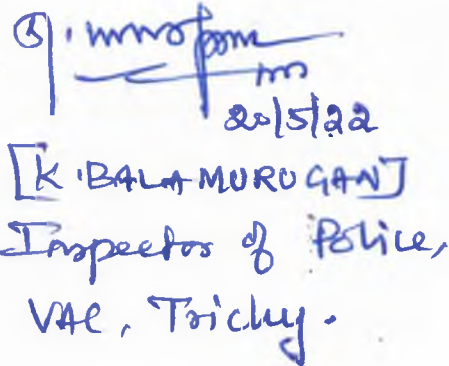 20/5/22
[K. BALAMURUGAN]
Inspector of Police,
VAC, Trichy.